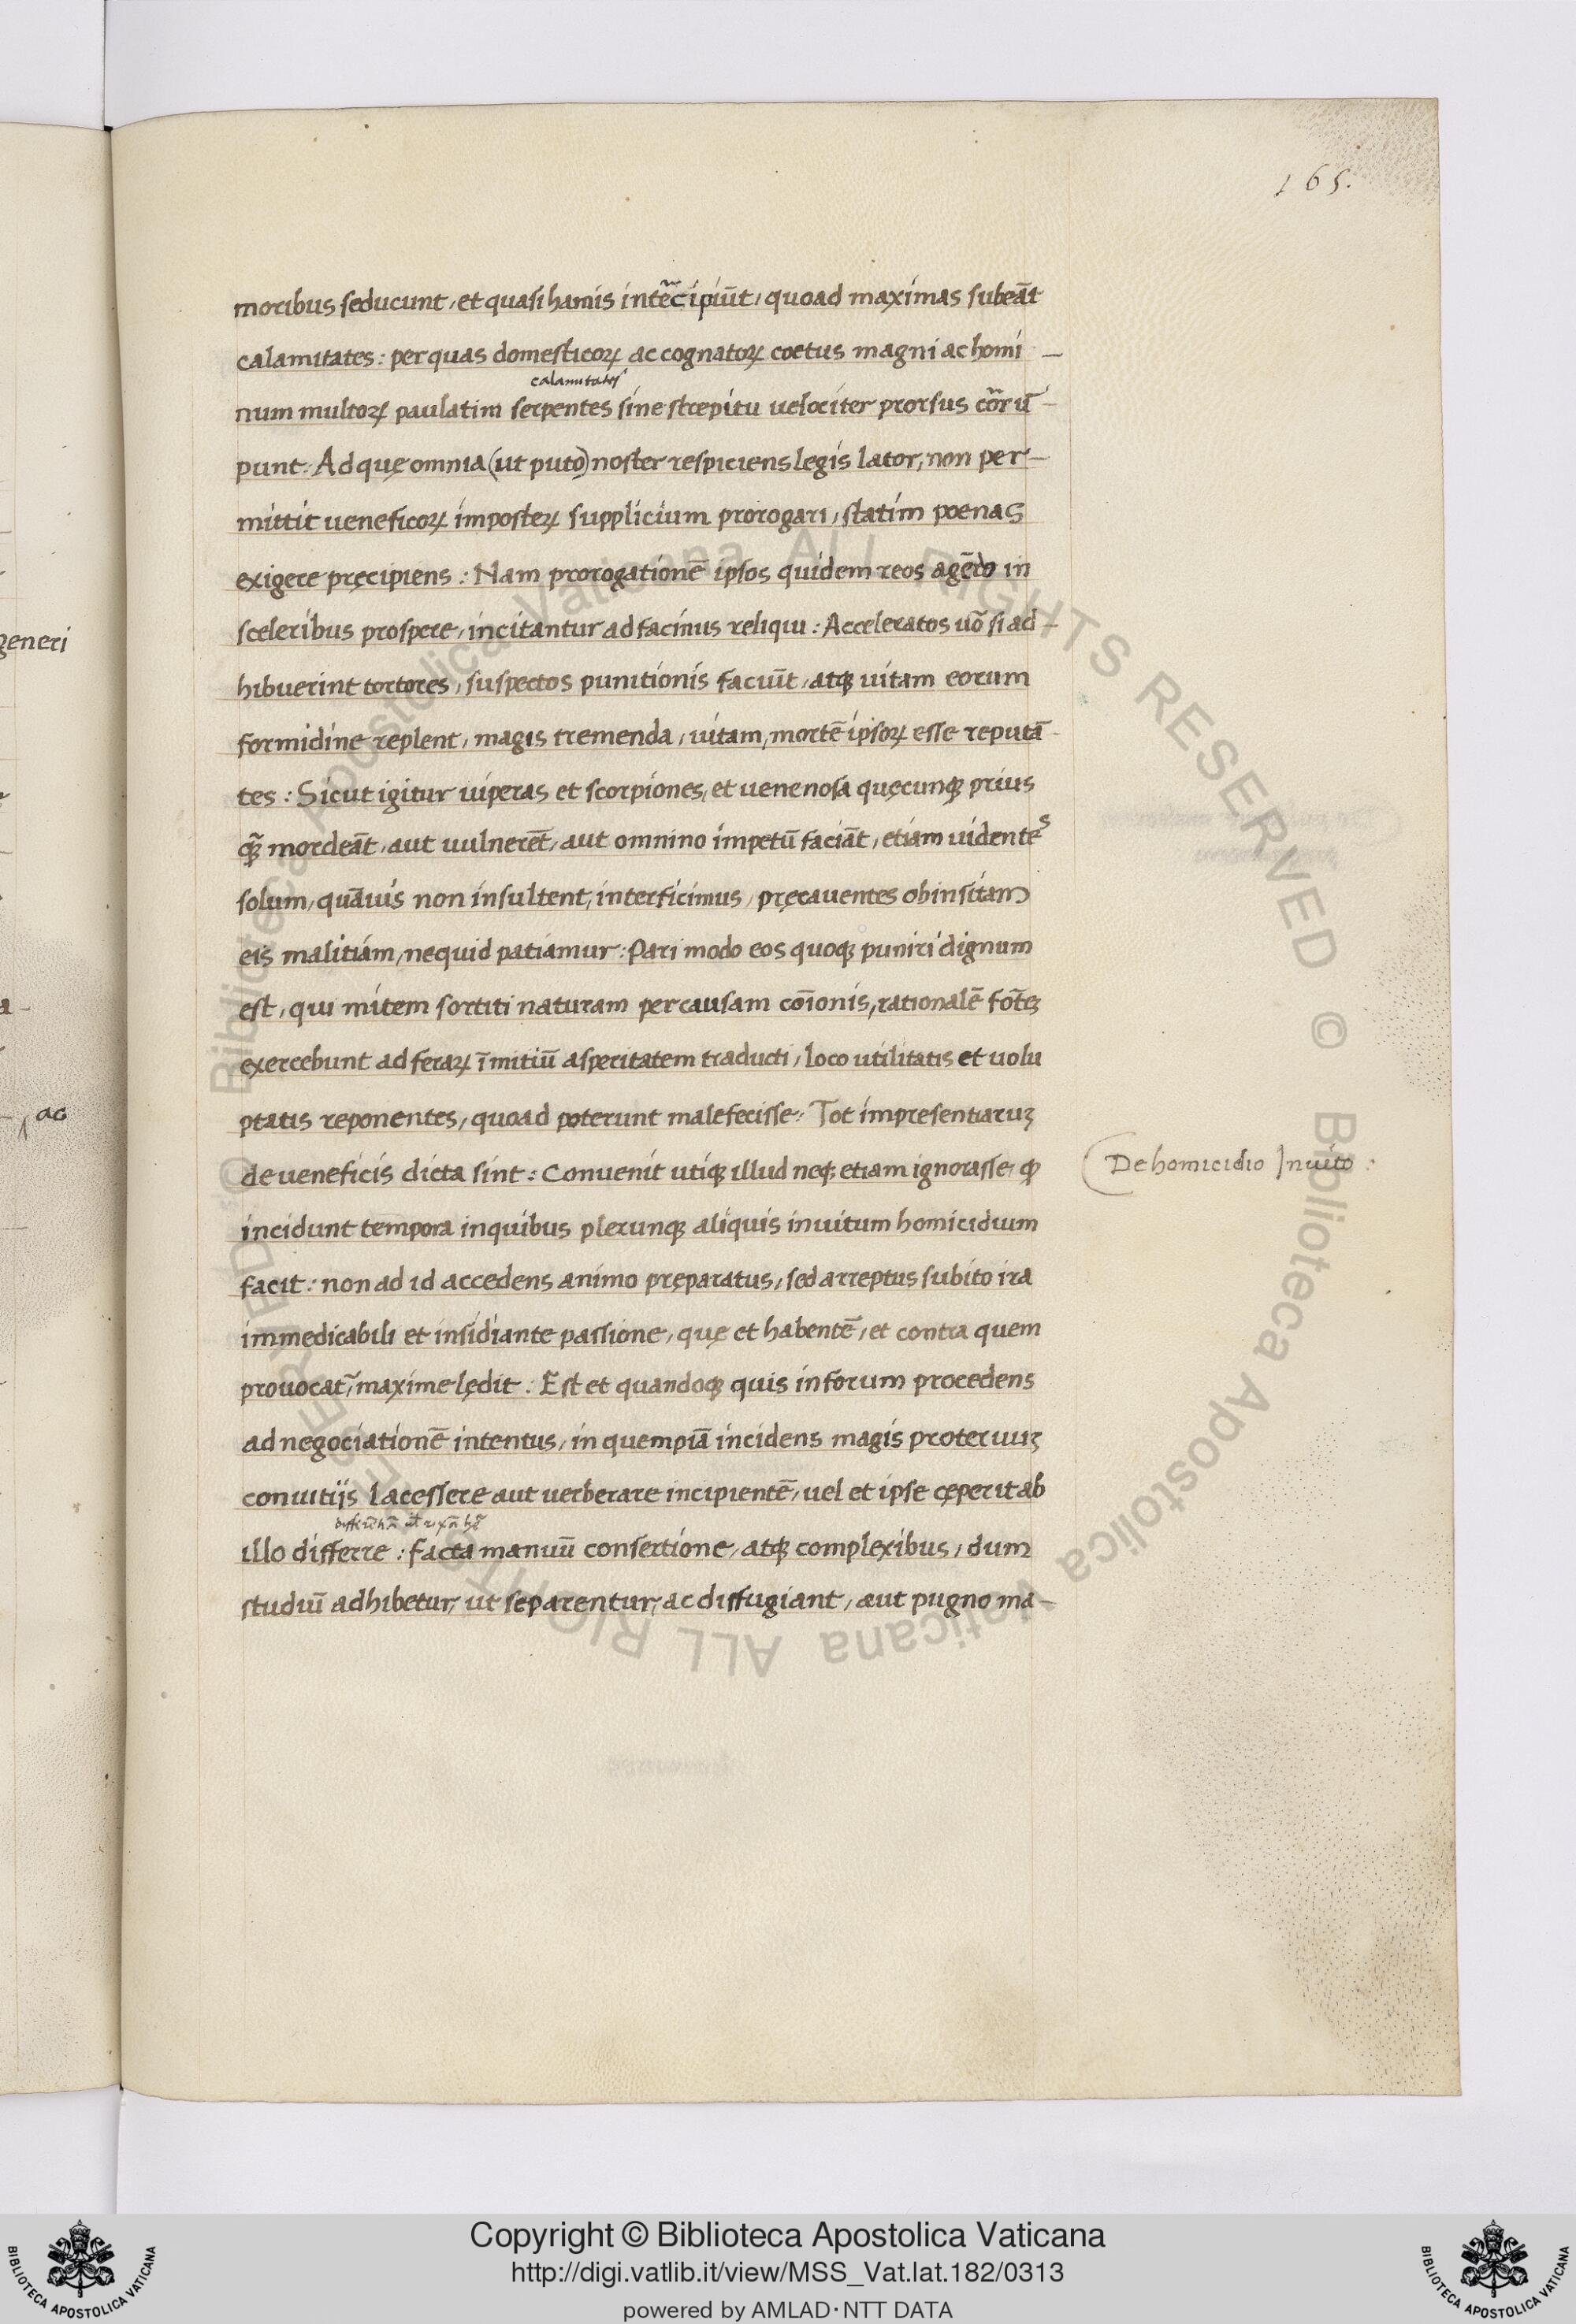 165.
moribus seducunt, et quasi hamis intērcipiūt, quoad maximas subeāt
calamitates: per quas domesticoꝝ ac cognatoꝝ coetus magni ac homi-
calamitates
num multoꝝ paulatim serpentes sine strepitu uelociter prorsus cōrrū-
punt: Ad quę omnia (ut puto) noster respiciens legis lator, non per-
mittit ueneficoꝝ imposteꝝ supplicium prorogari, statim poenas
exigere pręcipiens: Nam prorogationē ipsos quidem reos agēdo in
sceleribus prospere, incitantur ad facinus reliqui: Acceleratos uō si ad-
hibuerint tortores, suspectos punitionis faciūt, atqꝫ uitam eorum
formidine replent, magis tremenda, uitam, mortē ipsoꝝ esse reputā-
tes: Sicut igitur uiperas et scorpiones, et uenenosa quęcunqꝫ prius
qꝫ̄ mordeāt, aut uulnerēt, aut omnino impetū faciāt, etiam uidentes
solum, quāuis non insultent, interficimus, pręcauentes ob insitam
eis malitiam, nequid patiamur: Pari modo eos quoqꝫ puniri dignum
est, qui mitem sortiti naturam per causam cōīonis, rationalē fōteꝫ
exercebunt ad feraꝝ īmitiū asperitatem traducti, loco utilitatis et uolu
ptatis reponentes, quoad poterunt malefecisse: Tot impresentiaruꝫ
de ueneficis dicta sint: Conuenit utiqꝫ illud neqꝫ etiam ignorasse, ꝙ
De homicidio Inuito:
incidunt tempora in quibus plerunqꝫ aliquis inuitum homicidium
facit: non ad id accedens animo pręparatus, sed arreptus subito ira
immedicabili et insidiante passione, quę et habentē, et contra quem
prouocat̄, maxime lędit: Est et quandoqꝫ quis in forum procedens
ad negociationē intentus, in quempiā incidens magis proteruuꝫ
conuitijs lacessere aut uerberare incipientē, uel et ipse cęperit ab
illo differre: facta manuū consertione, atqꝫ complexibus, dum
studiū adhibetur, ut separentur, ac diffugiant, aut pugno ma-
generi
a-
, ac
Copyright © Biblioteca Apostolica Vaticana
http://digi.vatlib.it/view/MSS_Vat.lat.182/0313
powered by AMLAD·NTT DATA
BIBLIOTECA APOSTOLICA VATICANA
BIBLIOTECA APOSTOLICA VATICANA
© Biblioteca Apostolica Vaticana ALL RIGHTS RESERVED
© Biblioteca Apostolica Vaticana ALL RIGHTS RESERVED